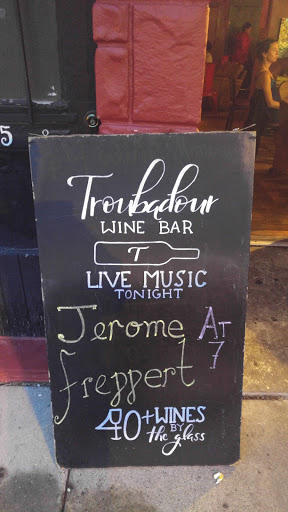 5
Troubadour
WINE BAR
T
LIVE MUSIC
TONIGHT
Jerome At
7
freppert
40+WINES
BY
the glass